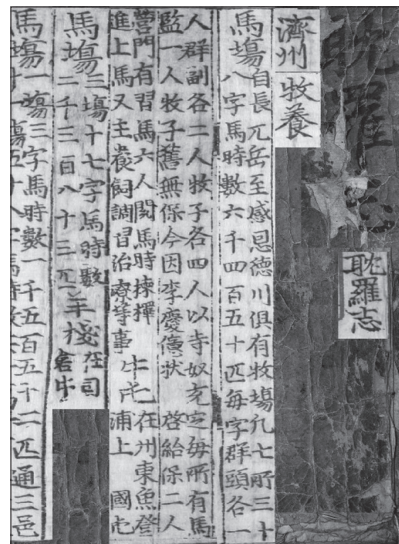 耽羅志
耽羅志
濟州 牧養
馬場 自長兀岳至感恩德川俱有牧場凡七所三十
八字馬時數六千四百五十匹每字群頭各一
人群副各二人牧子各四人以寺奴充定每所有馬
監一人牧子舊無保今因李慶億狀 啓給保二人
營門有習馬六人閱馬時揀擇
進上馬又主養飼調習治療等事
牛屯 在州東魚登
浦上 國屯
馬場 三場十七字馬時數
二千三百八十三匹
羊棧 在司
馬場 一場三字馬時數一千五百五十二匹通三邑
場五十八字馬時